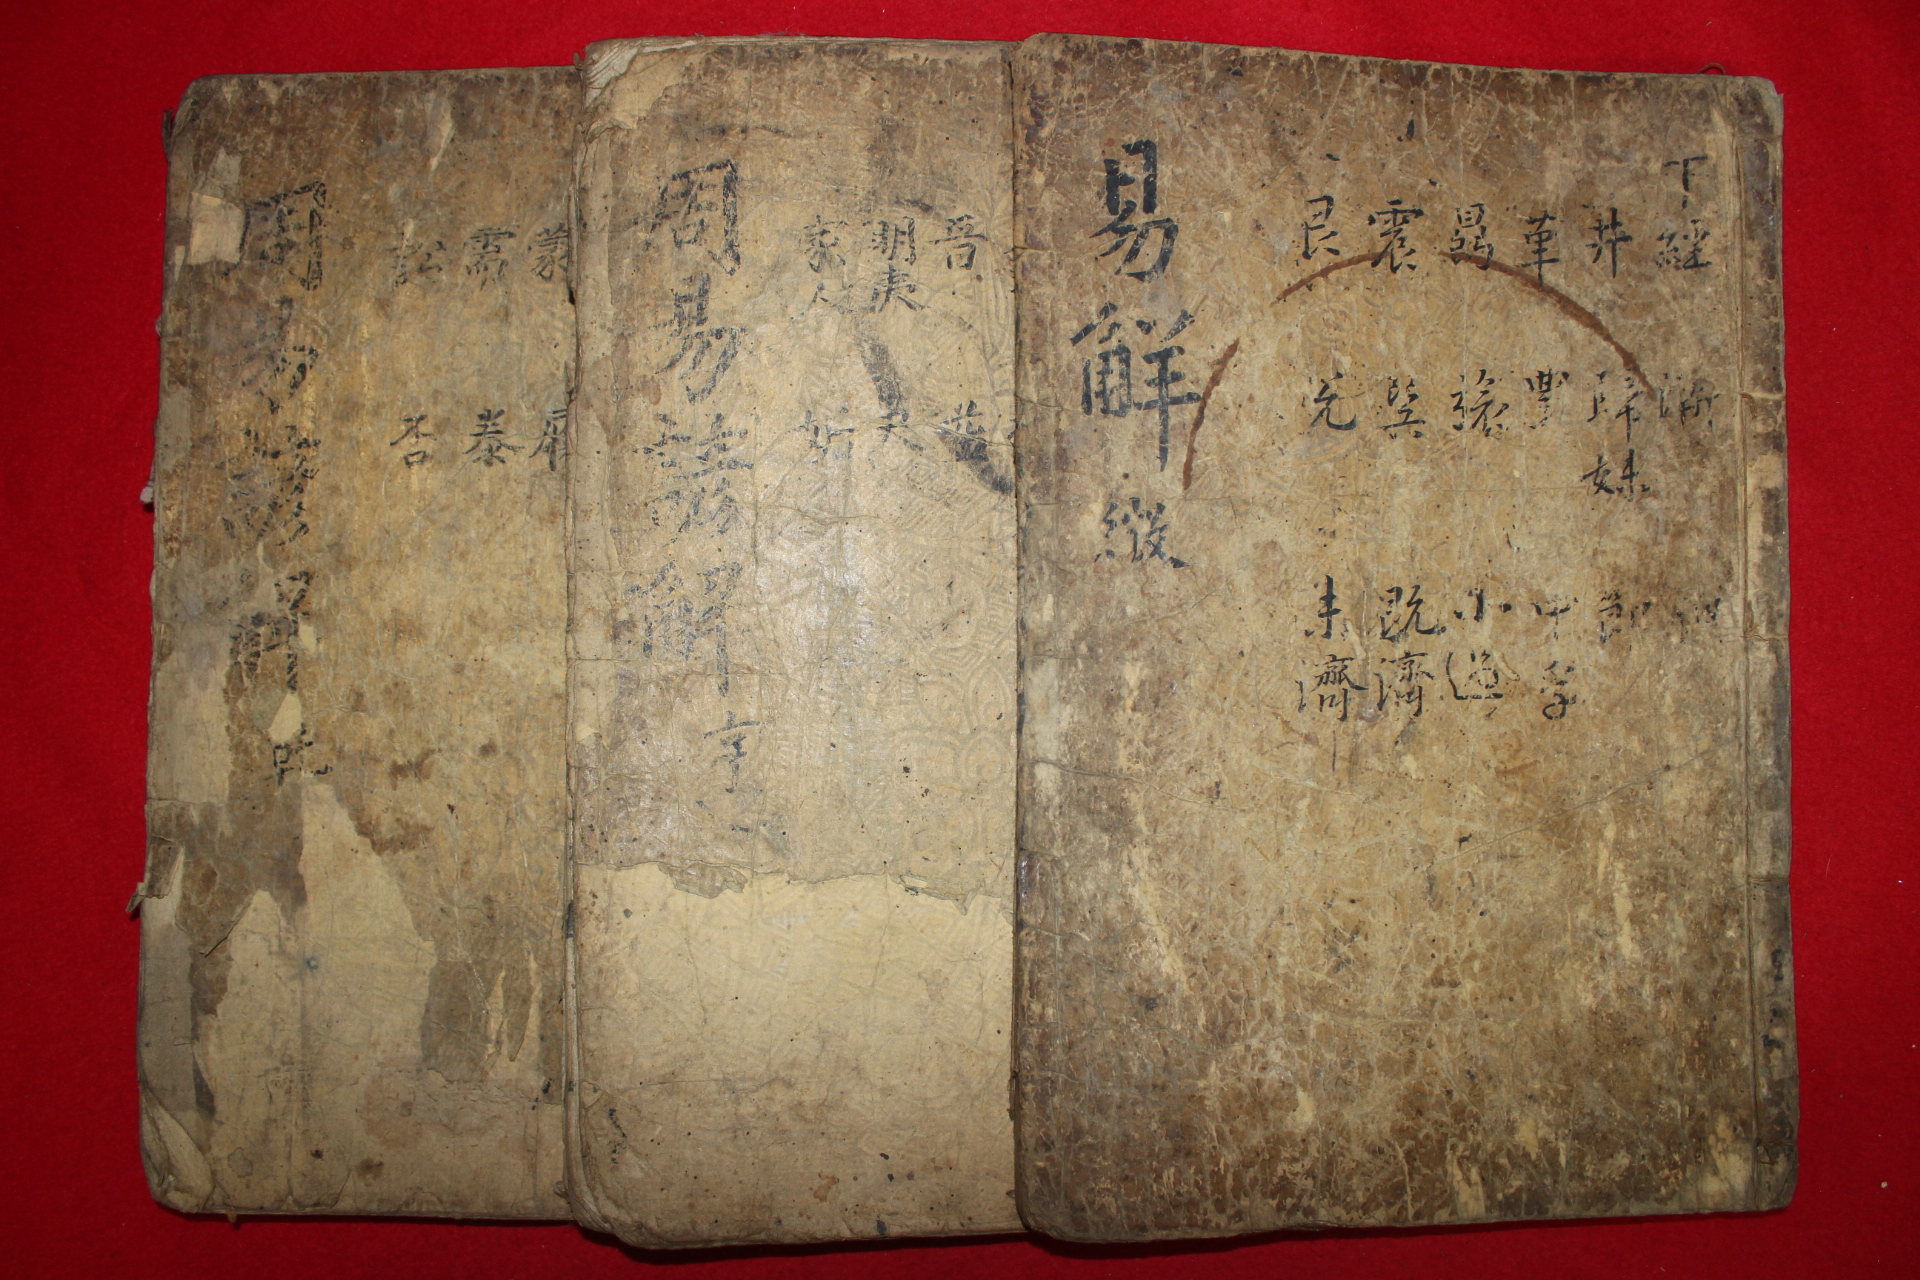 下經
井
革
鼎
震
艮
漸
歸妹
豐
旅
巽
兌
渙
節
中孚
小過
既濟
未濟
易解
晋
明夷
家人
萃
夬
姤
周易諺解 亨
蒙
需
訟
履
泰
否
周易諺解